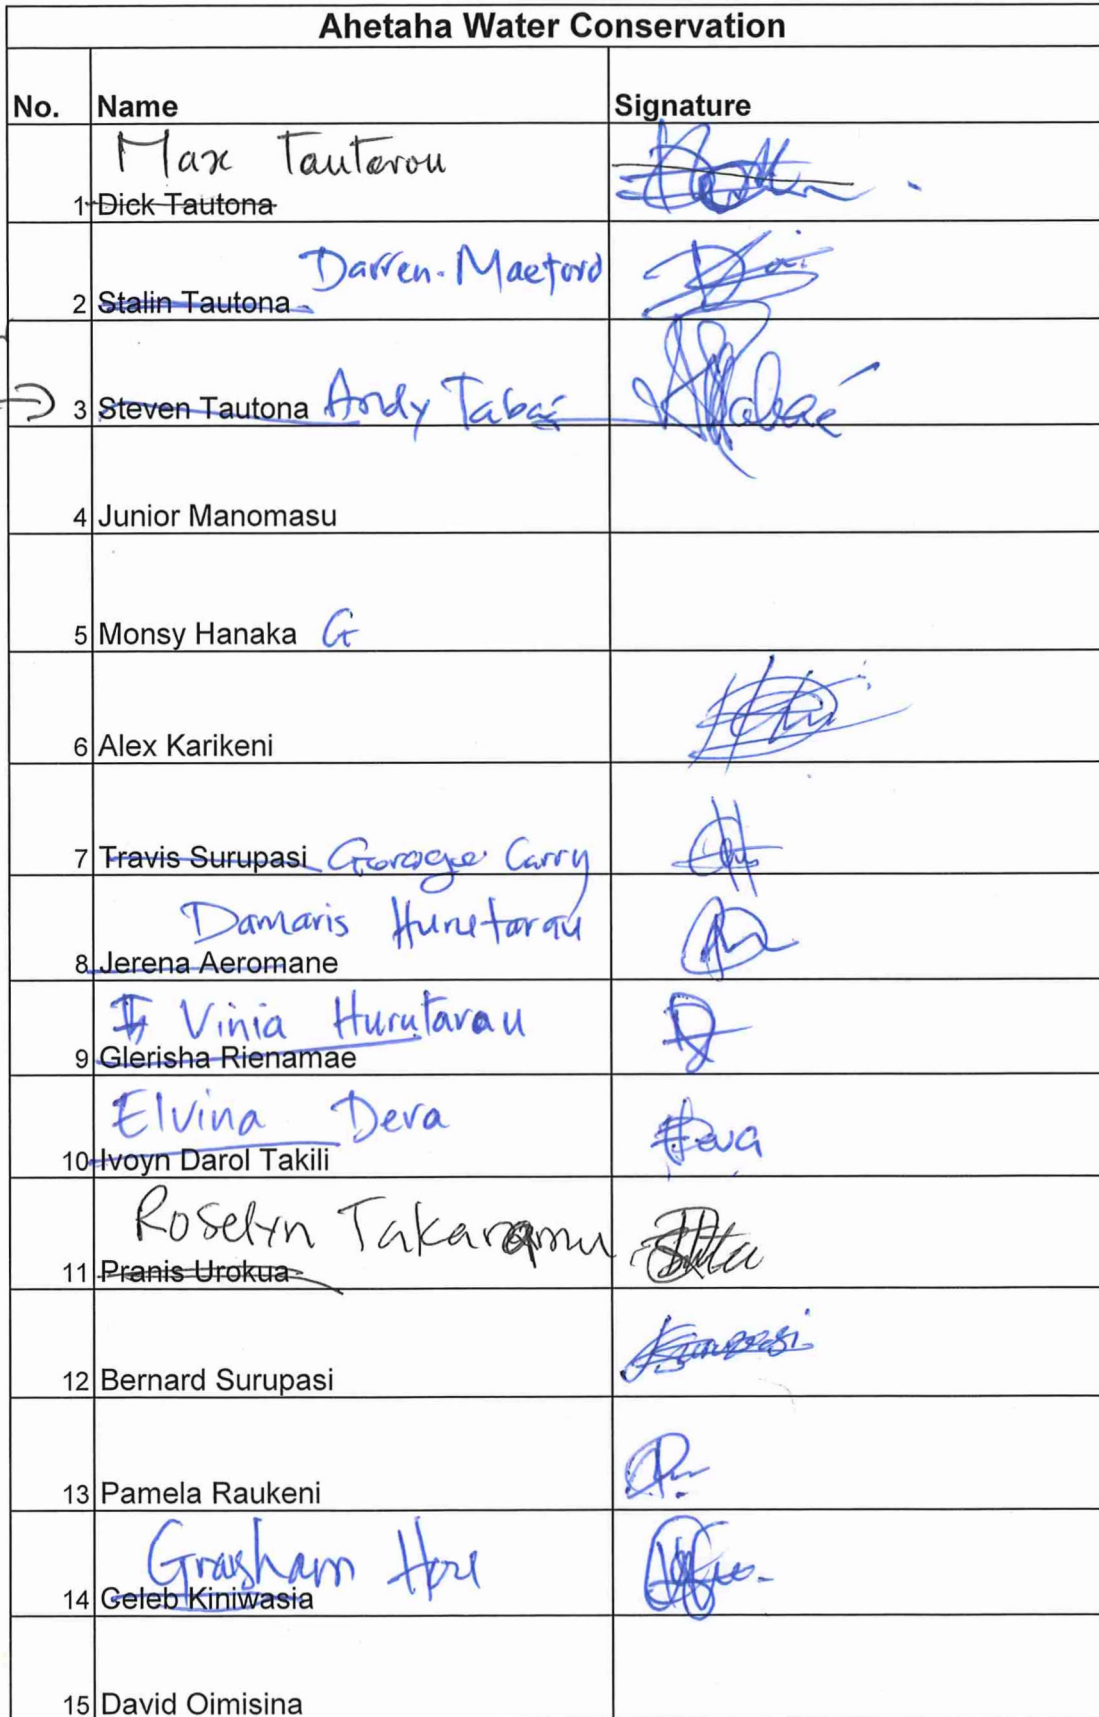 Ahetaha Water Conservation
No. Name Signature
Max Tautarou
1 Dick Tautona
Darren. Maeford
2 Stalin Tautona
3 Steven Tautona Andy Tabaé
4 Junior Manomasu
5 Monsy Hanaka G
6 Alex Karikeni
7 Travis Surupasi George Carry
Damaris Hurutarau
8 Jerena Aeromane
Vinia Hurutarau
9 Glerisha Rienamae
Elvina Deva
10 Ivoyn Darol Takili
Roselyn Takaramu
11 Pranis Urokua
12 Bernard Surupasi
13 Pamela Raukeni
Grasham
14 Geleb Kiniwasia
15 David Oimisina